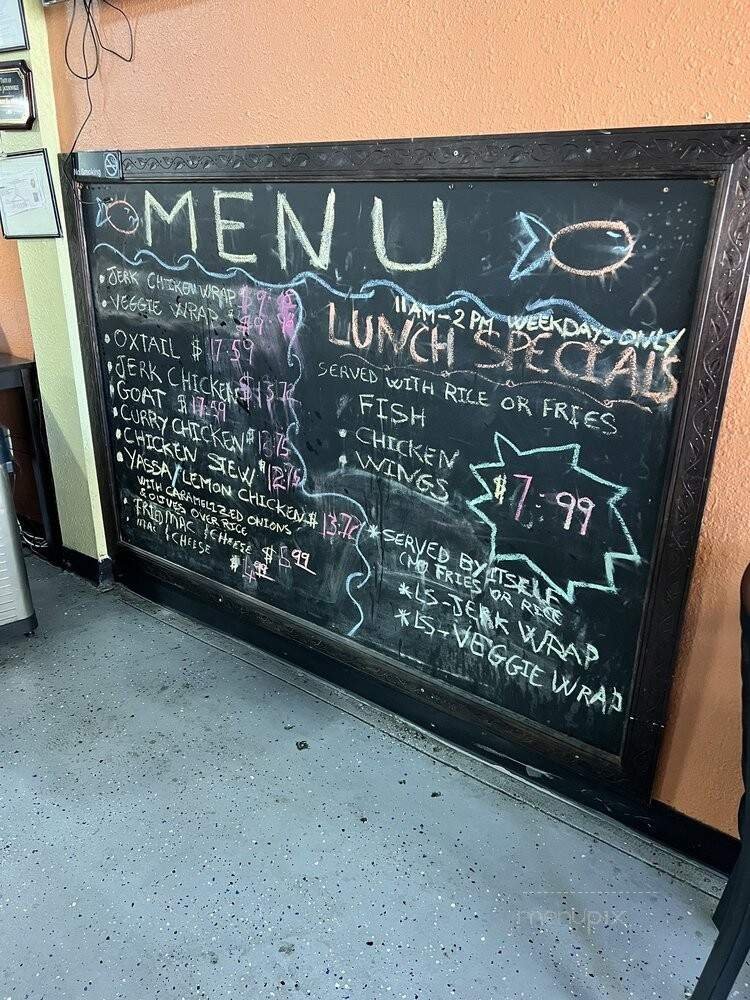 No Smoking
MENU
• JERK CHICKEN WRAP $9.
• VEGGIE WRAP $9.
• OXTAIL $17.59
• JERK CHICKEN $13.75
• GOAT $17.59
• CURRY CHICKEN $12.75
• CHICKEN STEW $12.75
• YASSA / LEMON CHICKEN $13.75
WITH CARAMELIZED ONIONS
& OLIVES OVER RICE
• FRIED MAC & CHEESE $5.99
MAC & CHEESE $4.99
11AM-2PM WEEKDAYS ONLY
LUNCH SPECIALS
SERVED WITH RICE OR FRIES
• FISH
• CHICKEN
• WINGS
$7.99
*SERVED BY ITSELF
(NO FRIES OR RICE
*LS-JERK WRAP
*LS-VEGGIE WRAP
menupix